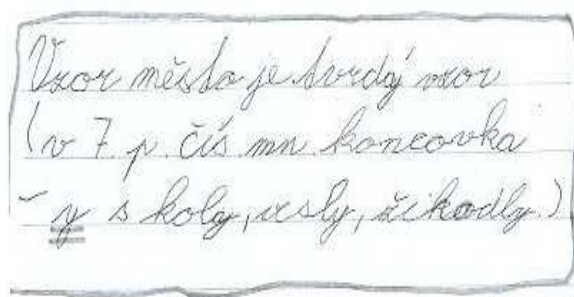 Vzor město je tvrdý vzor
(v 7. p. čís mn. koncovka
- y s koly, vesly, žihadly.)